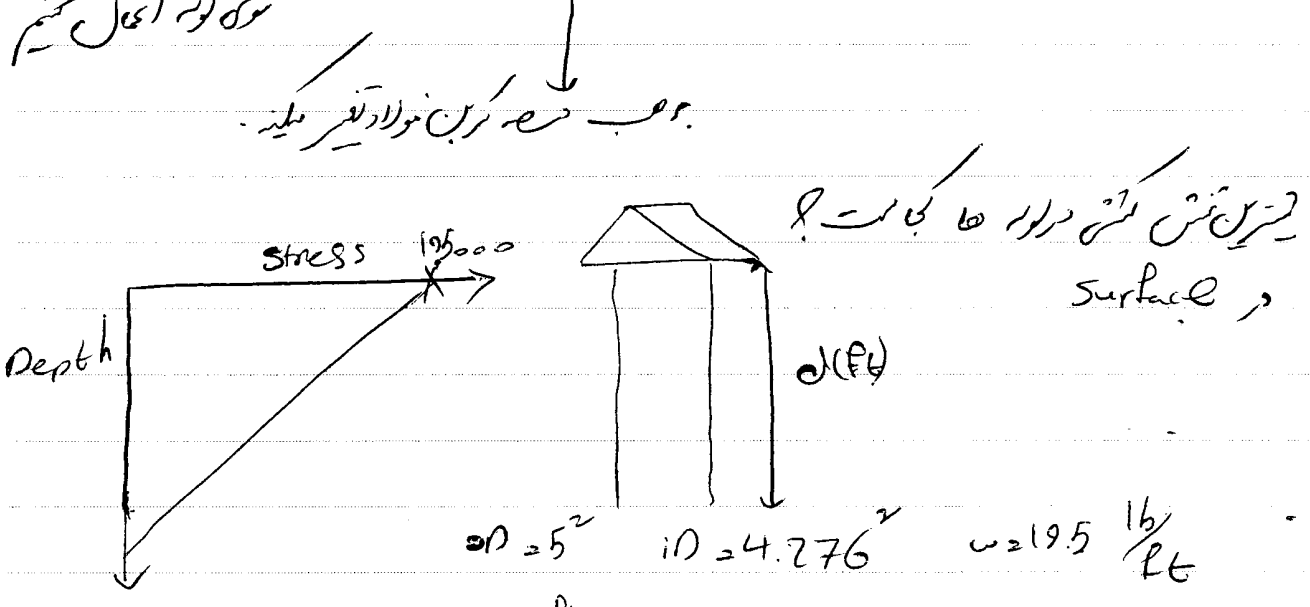 توی لوله اعمال کنیم
بر حسب درصد کربن فولاد تغییر میکند.
بیشترین تنش کششی در لوله ها کجاست؟
در surface
stress 195000
Depth
d(ft)
OD = 5² iD = 4.276² w = 19.5 lb/ft